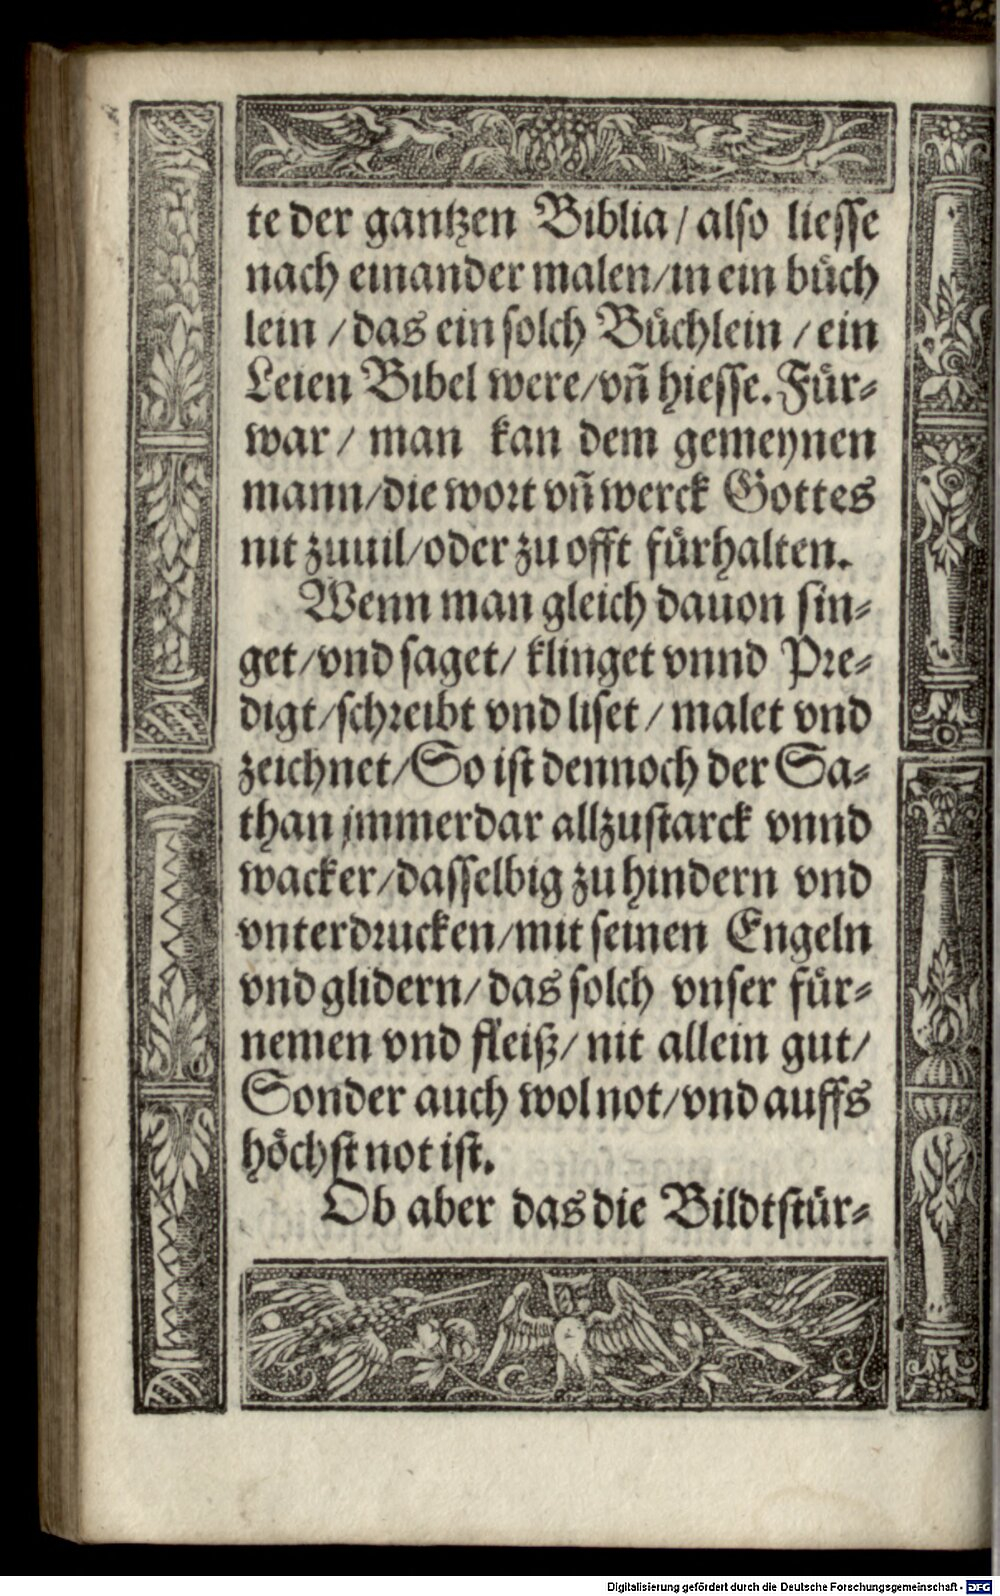 te der gantzen Biblia / also liesse
nach einander malen / in ein bůch
lein / das ein solch Bůchlein / ein
Leien Bibel were / vñ hiesse. Für⸗
war / man kan dem gemeynen
mann / die wort vñ werck Gottes
nit zuuil / oder zu offt fürhalten.
Wenn man gleich dauon sin⸗
get / vnd saget / klinget vnnd Pre⸗
digt / schreibt vnd liset / malet vnd
zeichnet / So ist dennoch der Sa⸗
than jmmerdar allzustarck vnnd
wacker / dasselbig zu hindern vnd
vnterdrucken / mit seinen Engeln
vnd glidern / das solch vnser für⸗
nemen vnd fleiß / nit allein gut /
Sonder auch wol not / vnd auffs
höchst not ist.
Ob aber das die Bildtstür⸗
Digitalisierung gefördert durch die Deutsche Forschungsgemeinschaft - DFG